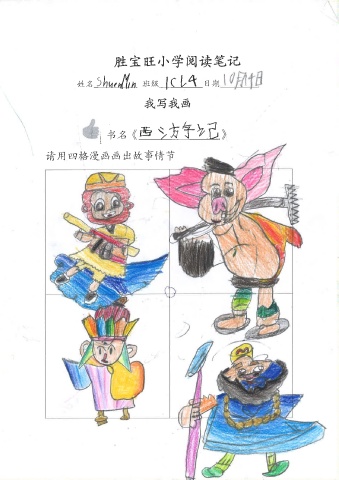 胜宝旺小学阅读笔记
姓名 ShuenMin 班级 1CL4 日期 10月14日
我写我画
书名《西游记》
请用四格漫画画出故事情节